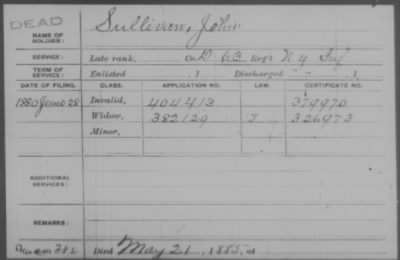 DEAD
NAME OF SOLDIER: Sullivan, John
SERVICE: Late rank, Co. D 63 Reg't N y Inf
TERM OF SERVICE: Enlisted , 1 Discharged , 1
DATE OF FILING. CLASS. APPLICATION NO. LAW. CERTIFICATE NO.
1880 June 28 Invalid, 404413 379970
Widow, 382129 J 326973
Minor,
ADDITIONAL SERVICES:
REMARKS:
Died May 21, 1885, at